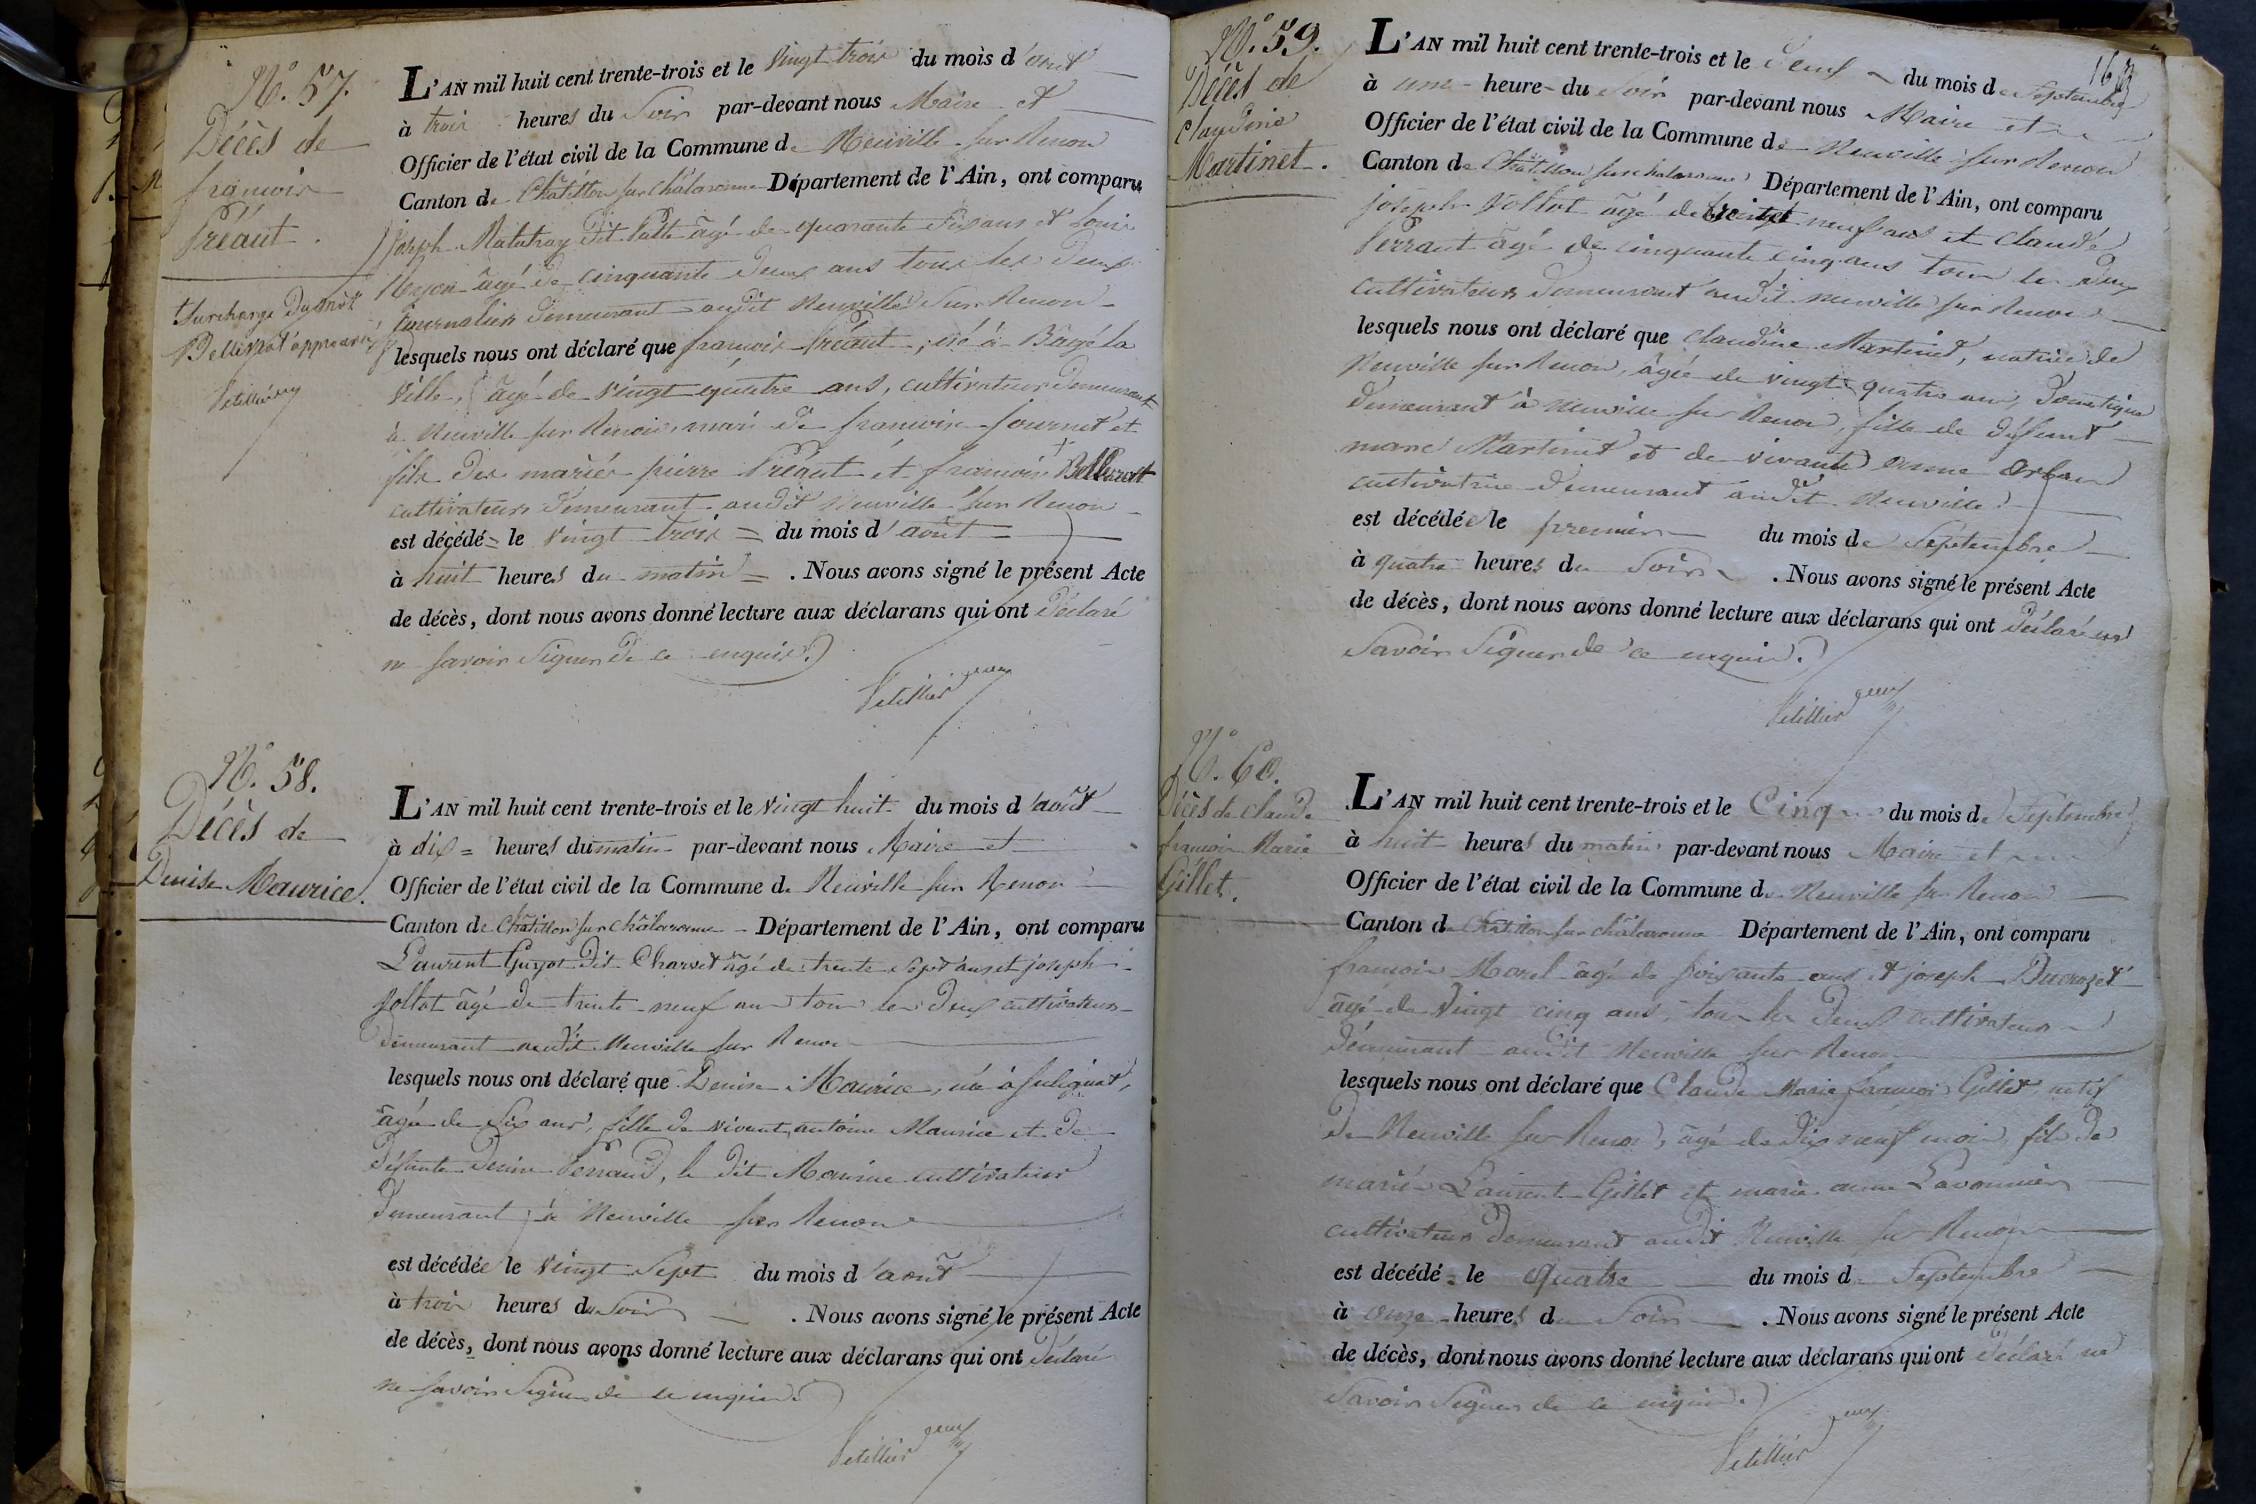 N.° 57.
Décès de
françois
fréaut.
Surcharge du mot
approuvé
L'AN mil huit cent trente-trois et le vingt trois du mois d'août
à trois heures du soir par-devant nous Maire et
Officier de l'état civil de la Commune de Neuville sur Renon
Canton de Châtillon sur Chalaronne Département de l'Ain, ont comparu
joseph dit âgé de quarante six ans et Louis
âgé de cinquante deux ans tous les deux
journaliers demeurant audit Neuville sur Renon
lesquels nous ont déclaré que françois fréaut, né à Bâgé la
ville, âgé de vingt quatre ans, cultivateur demeurant
à Neuville sur Renon, mari de françoise fournet et
fils des mariés pierre fréaut et françoise
cultivateurs demeurant audit Neuville sur Renon
est décédé le vingt trois du mois d'août
à huit heures du matin. Nous avons signé le présent Acte
de décès, dont nous avons donné lecture aux déclarans qui ont déclaré
ne savoir signer de ce enquis.
N.° 58.
Décès de
Denise Maurice.
L'AN mil huit cent trente-trois et le vingt huit du mois d'août
à dix heures du matin par-devant nous Maire et
Officier de l'état civil de la Commune de Neuville sur Renon
Canton de Châtillon sur Châlaronne Département de l'Ain, ont comparu
Laurent Guyot dit Charvet âgé de trente sept ans et joseph
Jollot âgé de trente neuf ans tous les deux cultivateurs
demeurant audit Neuville sur Renon
lesquels nous ont déclaré que Denise Maurice, née à Sulignat,
âgée de six ans, fille de vivant antoine Maurice et de
défunte Denise Perraud, le dit Maurice cultivateur
demeurant à Neuville sur Renon
est décédée le vingt sept du mois d'août
à trois heures du soir. Nous avons signé le présent Acte
de décès, dont nous avons donné lecture aux déclarans qui ont déclaré
ne savoir signer de ce enquis.
N.° 59.
Décès de
claudine
Martinet.
L'AN mil huit cent trente-trois et le deux du mois de Septembre
à une heure du soir par-devant nous Maire et
Officier de l'état civil de la Commune de Neuville sur Renon
Canton de Châtillon sur chalaronne Département de l'Ain, ont comparu
joseph Jollot âgé de trente neuf ans et claude
Perraut âgé de cinquante cinq ans tous les deux
cultivateurs demeurant audit neuville sur Renon
lesquels nous ont déclaré que claudine Martinet, native de
Neuville sur Renon, âgée de vingt quatre ans, domestique
demeurant à Neuville sur Renon, fille de défunt
marc Martinet et de vivante anne Orban
cultivatrice demeurant audit Neuville
est décédée le premier du mois de Septembre
à quatre heures du soir. Nous avons signé le présent Acte
de décès, dont nous avons donné lecture aux déclarans qui ont déclaré ne
savoir signer de ce enquis.
N.° 60.
Décès de claude
françois Marie
Gillet.
L'AN mil huit cent trente-trois et le Cinq du mois de Septembre
à huit heures du matin par-devant nous Maire et
Officier de l'état civil de la Commune de Neuville sur Renon
Canton de Châtillon sur châlaronne Département de l'Ain, ont comparu
françois Morel âgé de soixante ans et joseph Ducrozet
âgé de vingt cinq ans, tous les deux cultivateurs
demeurant audit Neuville sur Renon
lesquels nous ont déclaré que Claude Marie françois Gillet, natif
de Neuville sur Renon, âgé de dix neuf mois, fils de
mariés Laurent Gillet et marie anne Lavonnier
cultivateurs demeurant audit Neuville sur Renon
est décédé le quatre du mois de Septembre
à onze heures du Soir. Nous avons signé le présent Acte
de décès, dont nous avons donné lecture aux déclarans qui ont déclaré ne
savoir signer de ce enquis.